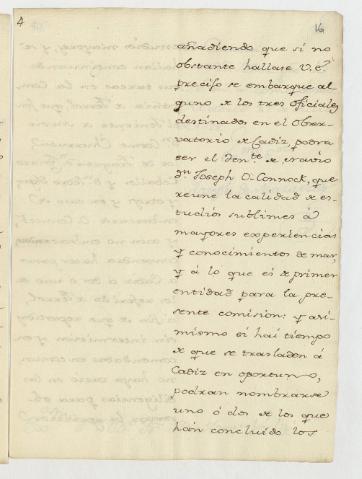 4
16
añadiendo que si no
obstante hallase V.E.
preciso se embarque al
guno de los tres oficiales
destinados en el Obser-
vatorio de Cadiz, podra
ser el Tente de navio
Dn Joseph O-Connock, que
reune la calidad de es-
tudios sublimes á
mayores experiencias
y conocimientos de mar,
y á lo que es de primer
entidad para la pre-
sente comision: y asi-
mismo si hai tiempo
de que se trasladen á
Cadiz en oportuno,
podran nombrarse
uno ó dos de los que
han concluido los